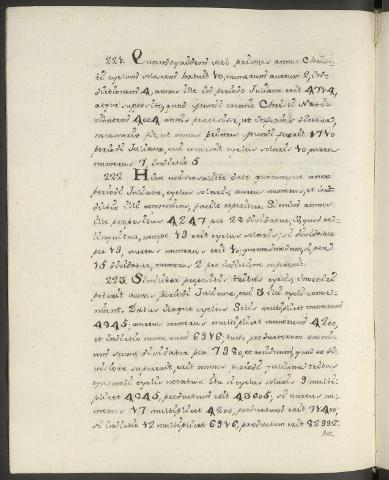 221. Quandoquidem vero primus annus Chris-
ti cyclum solarem habuit 10, numerum aureum 2, In-
dictionem 4, annus ille in periodo Juliana erit 4714,
atque supposito, quod Mundi creatio Christi Nati-
vitatem 4004 annis praecesserit, ut inferius dicetur,
necessario fit, ut annus primus Mundi fuerit 710
periodi Julianae, cui convenit cyclus solaris 10, aureus
numerus 7, Indictio 5
222. Hinc universaliter dato quocunque anno
periodi Julianae, cyclus solaris, aureus numerus, et in-
dictio illi conveniens, facile reperitur. Si enim annus
ille propositus 4247 per 28 dividatur, id quod re-
linquitur, nempe 19 erit cyclus solaris, si dividatur
per 19, aureus numerus erit 10, quemadmodum, si per
15 dividatur, numerus 2 pro indictione supererit.
223. Similiter propositis tribus cyclis, inveniri
poterit annus periodi Julianae, cui 3 illi cycli conve-
niant. Datus itaque cyclus Solis multiplicet numerum
4845, aureus numerus multiplicet numerum 4200,
et Indictio numerum 6916, tunc productorum omni-
um summa dividatur per 7980, et residuum, quod ex di-
visione supererit, erit annus periodi Julianae tribus
ejusmodi cyclis notatus. Ita si cyclus solaris 9 multi-
plicet 4845, productum erit 43605, si aureus nu-
merus 17 multiplicet 4200, productum erit 71400,
si Indictio 12 multiplicet 6916, productum erit 82992.